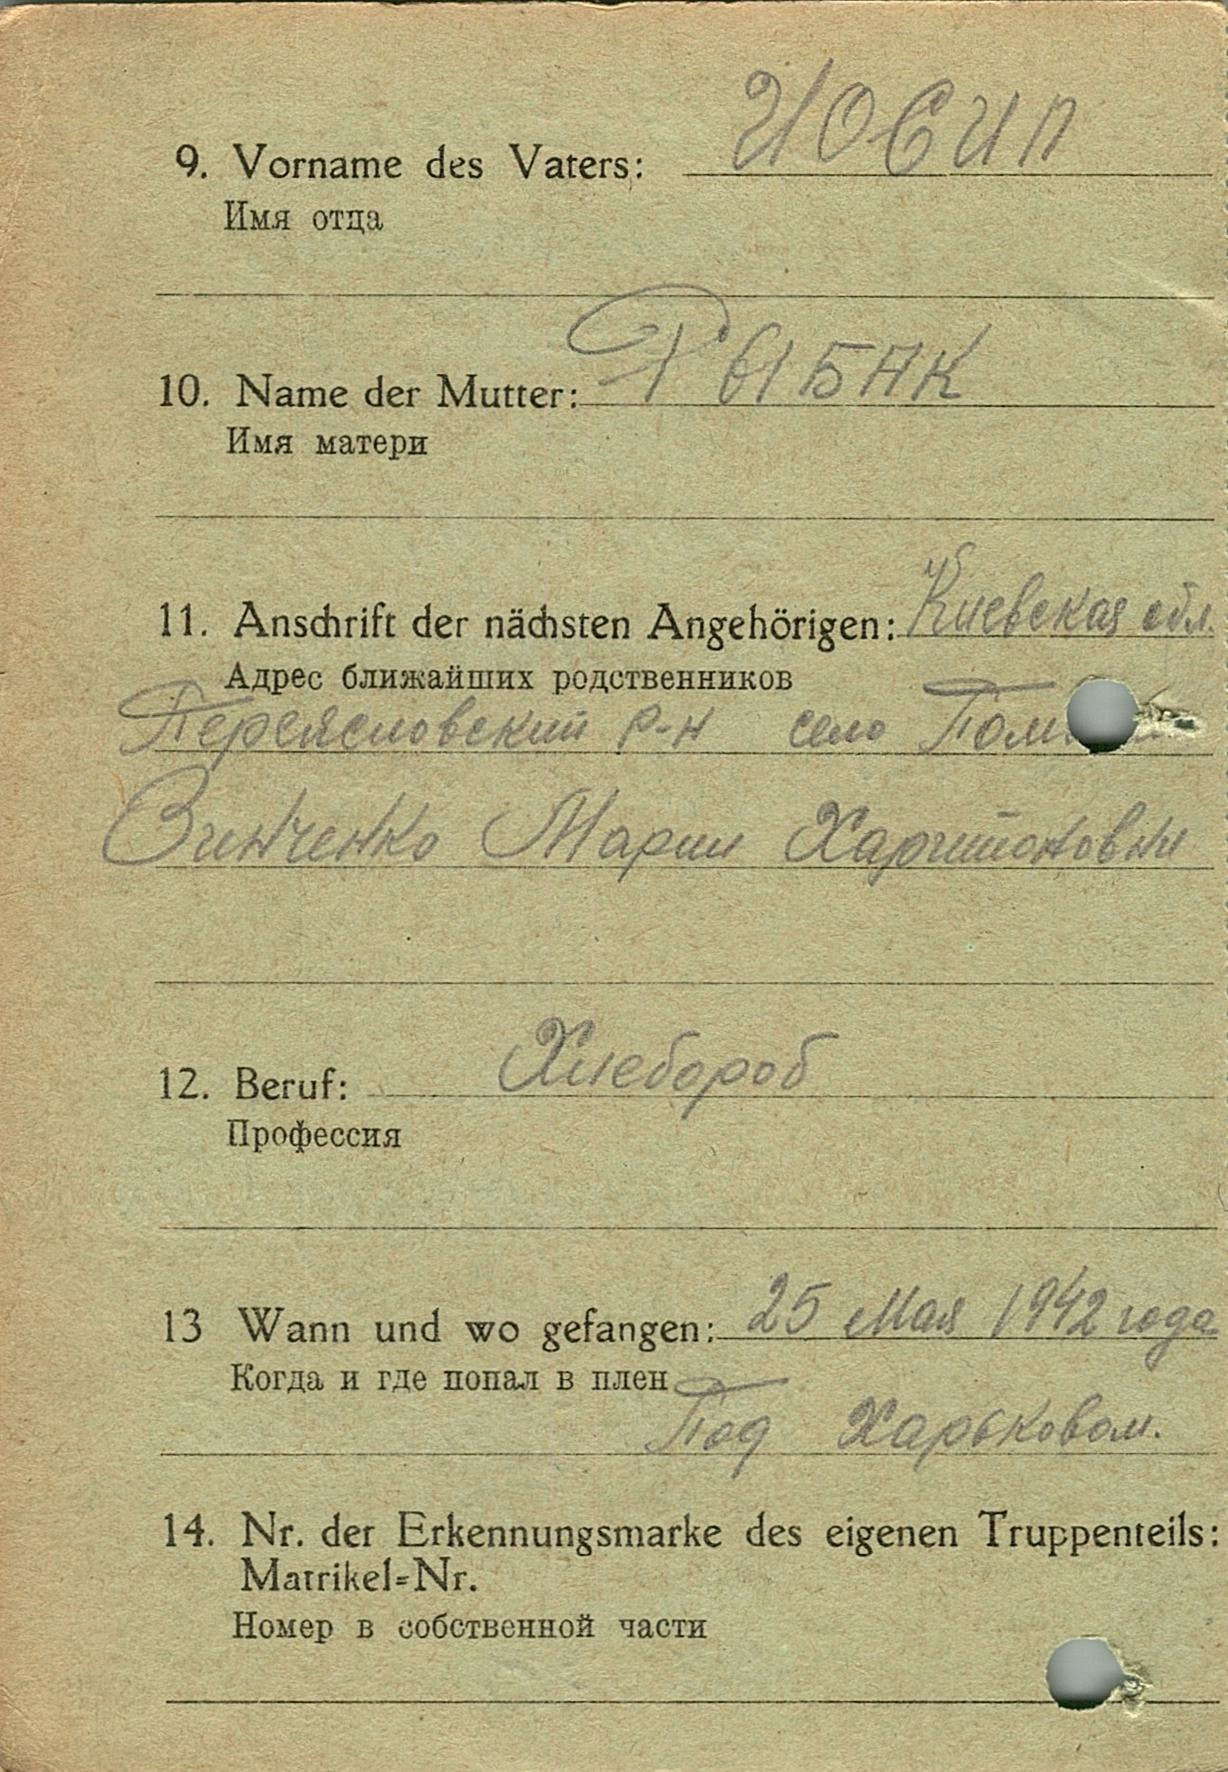 9. Vorname des Vaters: ИОСИП
Имя отца
10. Name der Mutter: РЫБАК
Имя матери
11. Anschrift der nächsten Angehörigen: Киевская обл.
Адрес ближайших родственников
Переясловский р-н село
Зинченко Марии Харитоновни
12. Beruf: Хлебороб
Профессия
13 Wann und wo gefangen: 25 Мая 1942 года
Когда и где попал в плен
Под Харьковом.
14. Nr. der Erkennungsmarke des eigenen Truppenteils:
Matrikel=Nr.
Номер в собственной части